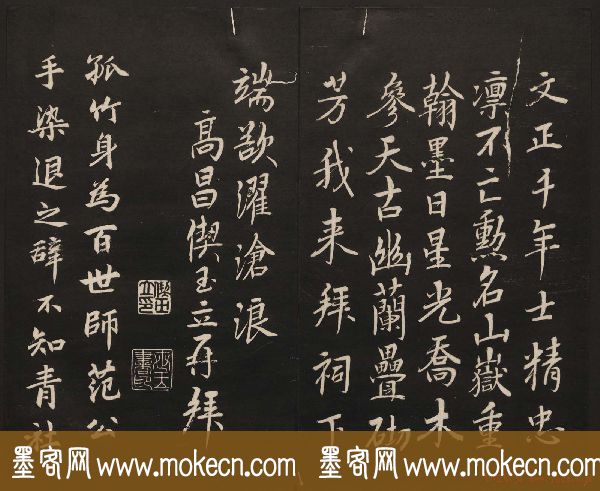 文正千年士精忠
凛不亡勲名山嶽重
翰墨日星光喬木
參天古幽蘭疊砌
芳我来拜祠下
端欲濯滄浪
高昌偰玉立再拜
孤竹身為百世師范公
手染退之辭不知青社
墨客网 www.mokecn.com 墨客网 www.mokecn.com